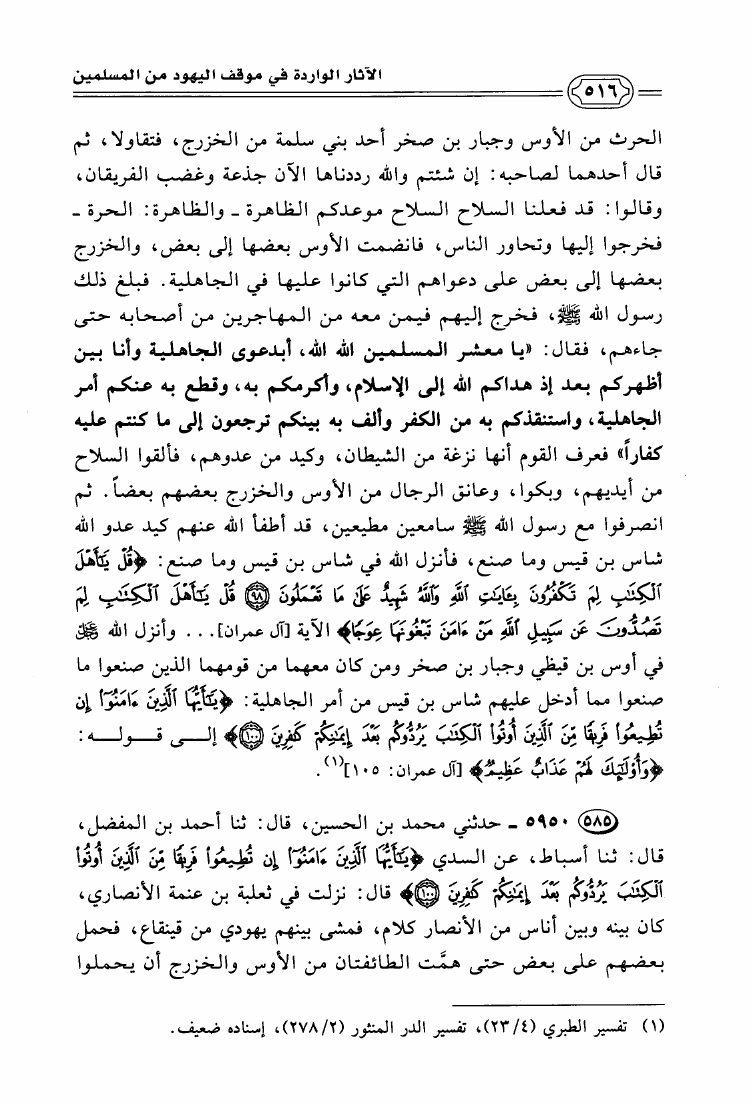 الآثار الواردة في موقف اليهود من المسلمين
٥١٦
الحرث من الأوس وجبار بن صخر أحد بني سلمة من الخزرج، فتقاولا، ثم
قال أحدهما لصاحبه: إن شئتم والله رددناها الآن جذعة وغضب الفريقان،
وقالوا: قد فعلنا السلاح السلاح موعدكم الظاهرة ـ والظاهرة: الحرة ـ
فخرجوا إليها وتحاور الناس، فانضمت الأوس بعضها إلى بعض، والخزرج
بعضها إلى بعض على دعواهم التي كانوا عليها في الجاهلية. فبلغ ذلك
رسول الله ﷺ، فخرج إليهم فيمن معه من المهاجرين من أصحابه حتى
جاءهم، فقال: «يا معشر المسلمين الله الله، أبدعوى الجاهلية وأنا بين
أظهركم بعد إذ هداكم الله إلى الإسلام، وأكرمكم به، وقطع به عنكم أمر
الجاهلية، واستنقذكم به من الكفر وألف به بينكم ترجعون إلى ما كنتم عليه
كفاراً» فعرف القوم أنها نزغة من الشيطان، وكيد من عدوهم، فألقوا السلاح
من أيديهم، وبكوا، وعانق الرجال من الأوس والخزرج بعضهم بعضاً. ثم
انصرفوا مع رسول الله ﷺ سامعين مطيعين، قد أطفأ الله عنهم كيد عدو الله
شاس بن قيس وما صنع، فأنزل الله في شاس بن قيس وما صنع: ﴿قُلْ يَٰٓأَهْلَ
ٱلْكِتَٰبِ لِمَ تَكْفُرُونَ بِـَٔايَٰتِ ٱللَّهِ وَٱللَّهُ شَهِيدٌ عَلَىٰ مَا تَعْمَلُونَ ﴿٩٨﴾ قُلْ يَٰٓأَهْلَ ٱلْكِتَٰبِ لِمَ
تَصُدُّونَ عَن سَبِيلِ ٱللَّهِ مَنْ ءَامَنَ تَبْغُونَهَا عِوَجًا﴾ الآية [آل عمران]... وأنزل الله ﷺ
في أوس بن قيظي وجبار بن صخر ومن كان معهما من قومهما الذين صنعوا ما
صنعوا مما أدخل عليهم شاس بن قيس من أمر الجاهلية: ﴿يَٰٓأَيُّهَا ٱلَّذِينَ ءَامَنُوٓا۟ إِن
تُطِيعُوا۟ فَرِيقًا مِّنَ ٱلَّذِينَ أُوتُوا۟ ٱلْكِتَٰبَ يَرُدُّوكُم بَعْدَ إِيمَٰنِكُمْ كَٰفِرِينَ ﴿١٠٠﴾﴾ إلــى قــولــه:
﴿وَأُو۟لَٰٓئِكَ لَهُمْ عَذَابٌ عَظِيمٌ﴾ [آل عمران: ١٠٥](١).
٥٨٥ ٥٩٥٠ ـ حدثني محمد بن الحسين، قال: ثنا أحمد بن المفضل،
قال: ثنا أسباط، عن السدي ﴿يَٰٓأَيُّهَا ٱلَّذِينَ ءَامَنُوٓا۟ إِن تُطِيعُوا۟ فَرِيقًا مِّنَ ٱلَّذِينَ أُوتُوا۟
ٱلْكِتَٰبَ يَرُدُّوكُم بَعْدَ إِيمَٰنِكُمْ كَٰفِرِينَ ﴿١٠٠﴾﴾ قال: نزلت في ثعلبة بن عنمة الأنصاري،
كان بينه وبين أناس من الأنصار كلام، فمشى بينهم يهودي من قينقاع، فحمل
بعضهم على بعض حتى همَّت الطائفتان من الأوس والخزرج أن يحملوا
(١) تفسير الطبري (٢٣/٤)، تفسير الدر المنثور (٢٧٨/٢)، إسناده ضعيف.